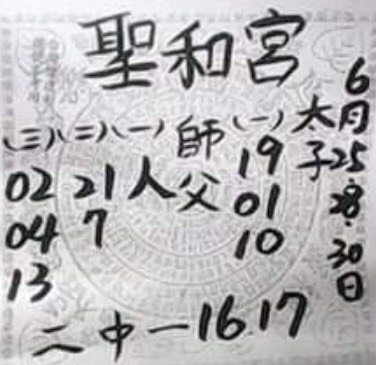 聖和宮
6月25.28.30日
太子
(一)
19
01
10
師父
(一)人
(二)
21
7
(三)
02
04
13
二中一16.17